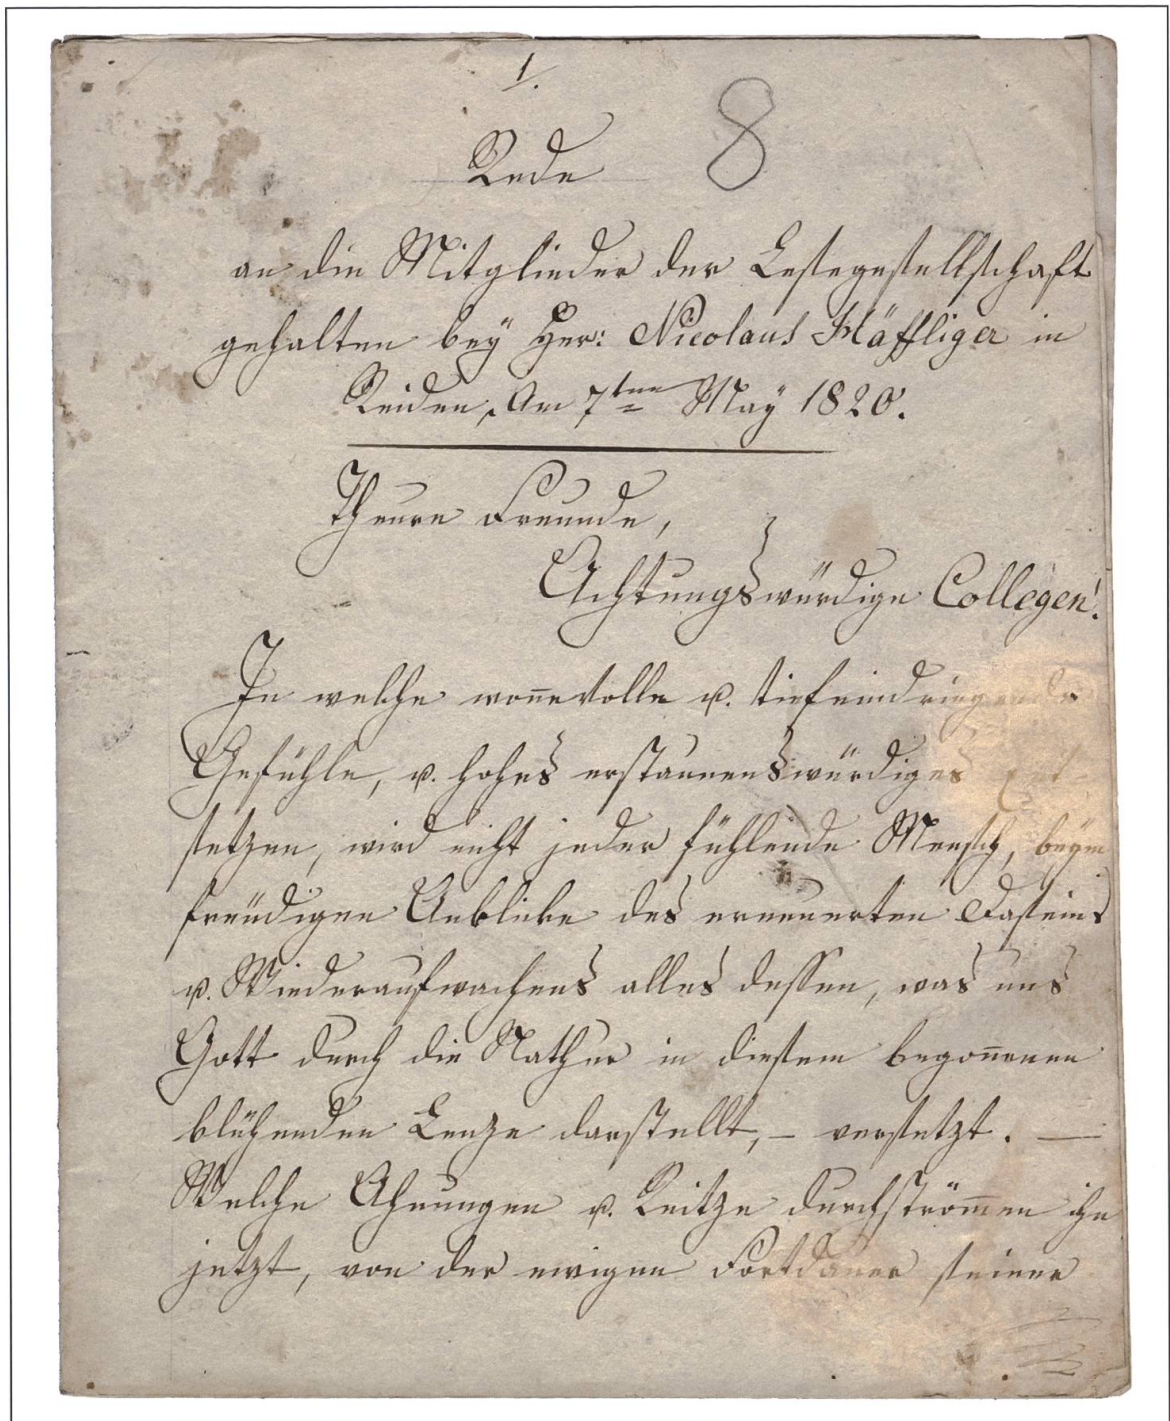 1.
8
Rede
an die Mitglieder der Lesegesellschaft
gehalten bey Her: Nicolaus Häffliger in
Reiden, Am 7ten May 1820.
Theure Freunde,
Achtungswürdige Collegen!
In welche wonnevolle u. tiefeindringende
Gefühle, u. hohes erstaunenswürdiges Ent
setzen, wird nicht jeder fühlende Mensch, beym
freudigen Anblicke des erneuerten Daseins
u. Wiederaufwachens alles dessen, was uns
Gott durch die Nathur in diesem begonnenen
blühenden Lenze darstellt, – versetzt. —
Welche Ahnungen u. Reitze durchströmmen ihn
jetzt, von der ewigen Fortdauer seiner